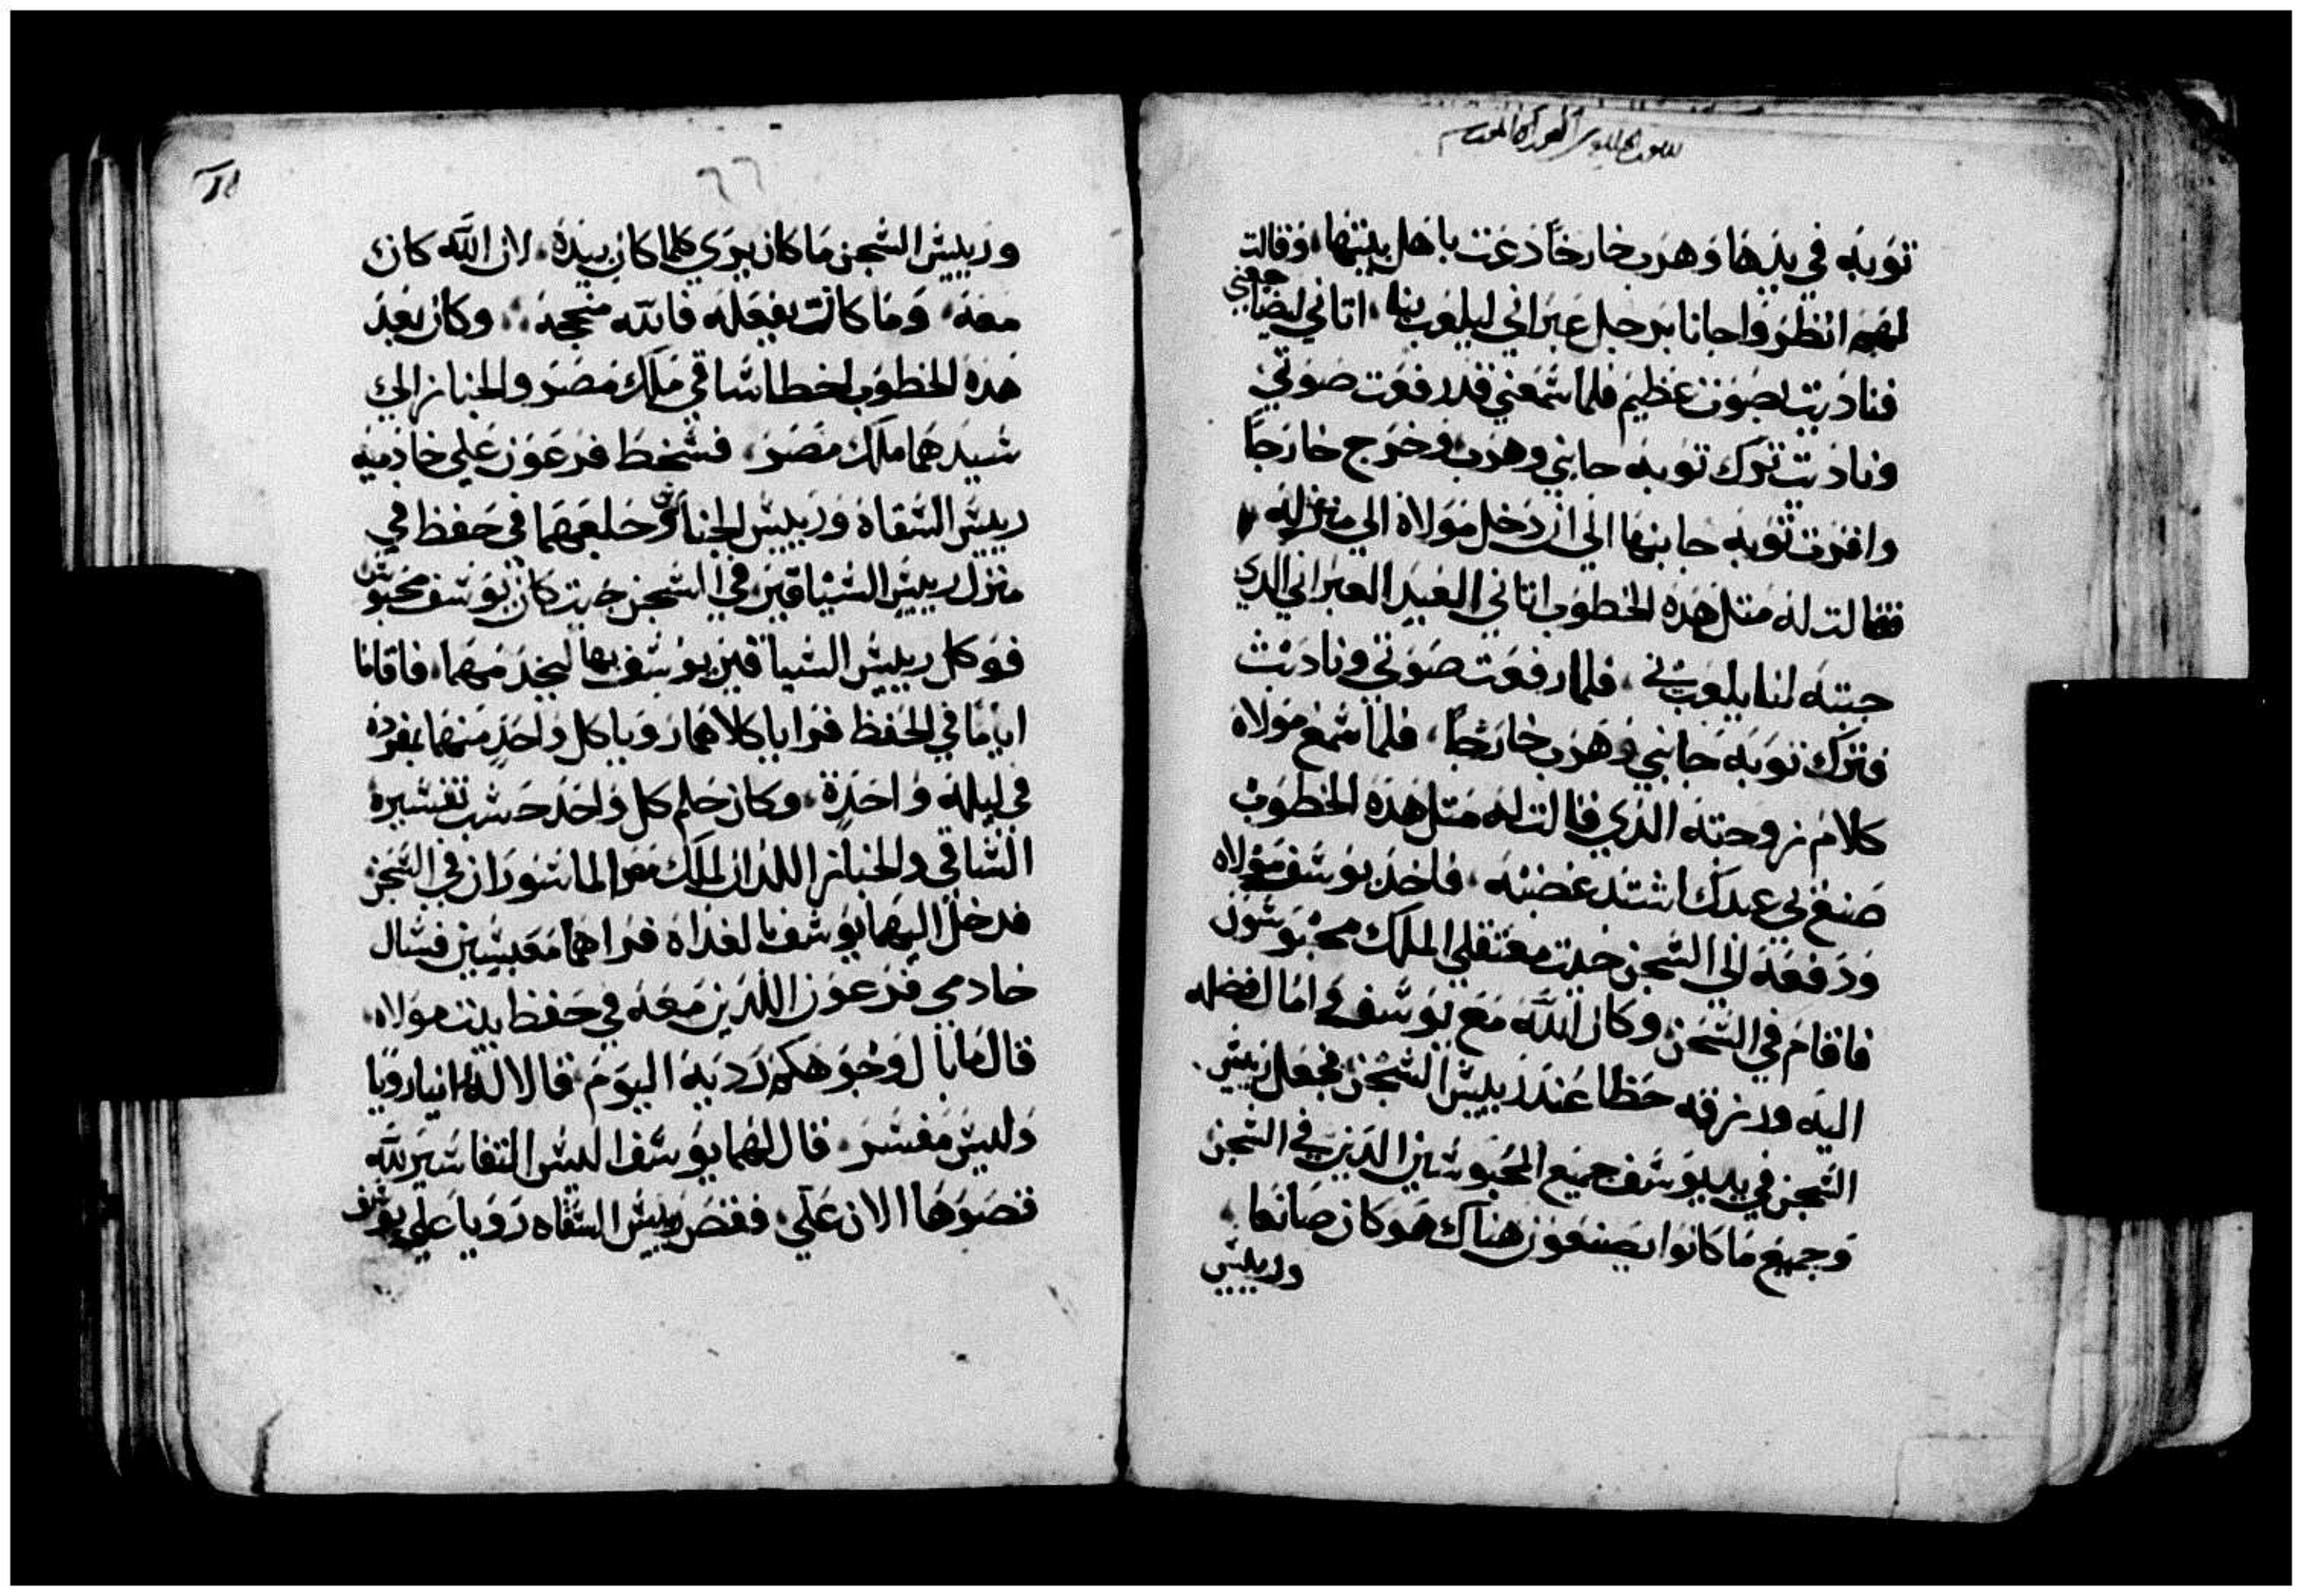 توبه في يدها وهرب خارجًا دعت باهل بيتها، وقالت
لهم انظروا جانا برجل عبراني ليلعب بنا، اتاني ليضاجعني
فناديت بصوت عظيم فلما سمعني قد رفعت صوتي
وناديت ترك توبه جانبي وهرب وخرج خارجًا
واقرت توبه جانبها الي ان دخل مولاه الي منزله
فقالت له متل هده الخطوب اتاني العبد العبراني الدي
جبته لنا يلعب بي، فلما رفعت صوتي وناديت
فترك توبه جانبي وهرب خارجًا، فلما سمع مولاه
كلام زوجته الدي قالت له متل هده الخطوب
صنع بي عبدك اشتد غضبه، فاخد يوسف مولاه
ودفعه الي السجن حيت معتقلي الملك محبوسون
فاقام في السجن وكان الله مع يوسف وامال فضله
اليه ورزقه حظا عند رييس السجن فجعل رييس
السجن في يد يوسف جميع المحبوسين الدين في السجن
وجميع ما كانوا يصنعون هناك هو كان صانعا
ورييس
ورييس السجن ما كان يري كلما كان بيده، لان الله كان
معه، وما كانت يفعله فالله منجحه، وكان بعد
هده الخطوب اخطا ساقي ملك مصر والخباز الي
سيدهما ملك مصر، فسخط فرعون علي خادميه
رييس السقاه ورييس الخبازين وجعلهما في حفظ في
منزل رييس السيافين في السجن حيت كان يوسف محبوس
فوكل رييس السيافين يوسف بهما ليخدمهما، فاقاما
ايامًا في الحفظ فرايا كلاهما رويا كل واحد منهما بمفرده
في ليله واحدة، وكان حلم كل واحد حسب تفسيره
الساقي والخباز اللدان لملك مصر الماسوران في السجن
فدخل اليهما يوسف بالغداه فراهما معبسين فسال
خادمي فرعون اللدين معه في حفظ بيت مولاه،
قال ما بال وجوهكم رديه اليوم قالا له انيا رويا
وليس مفسر، قال لهما يوسف اليس التفاسير لله
فصوها الان علي، فقص رييس السقاه رويا علي يوسف